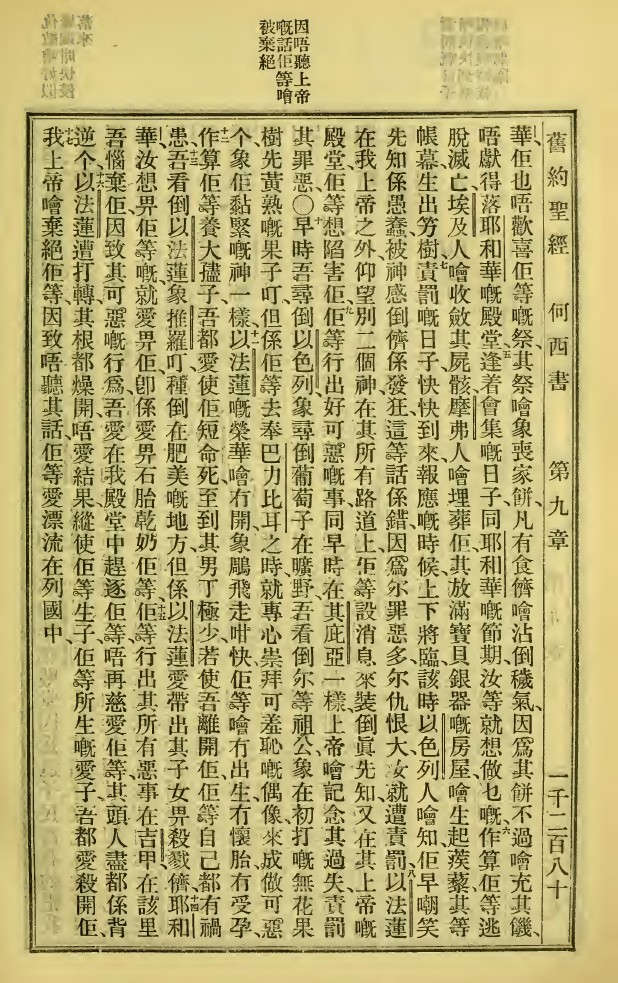 因唔聽上帝
嘅話佢等噲
被棄絕
舊約聖經 何西書 第九章 一千二百八十
華、佢也唔歡喜佢等嘅祭、其祭噲象喪家餅、凡有食儕噲沾倒穢氣、因爲其餅不過噲充其饑、
唔獻得落耶和華嘅殿堂、五逢着會集嘅日子、同耶和華嘅節期、汝等就想做乜嘅作算、六佢等逃
脫滅亡、埃及人噲收斂其屍骸、摩弗人噲埋葬佢、其放滿寶貝銀器嘅房屋、噲生起蒺藜、其等
帳幕生出竻樹、七責罰嘅日子快快到來、報應嘅時候上下將臨、該時以色列人噲知、佢早嘲笑
先知係愚蠢、被神感倒儕係發狂、這等話係錯、因爲尔罪惡多、尔仇恨大、女就遭責罰、八以法蓮
在我上帝之外仰望別二個神、在其所有路道上、佢等設消息來裝倒眞先知、又在其上帝嘅
殿堂、佢等想陷害佢、九佢等行出好可惡嘅事、同早時在其庇亞一樣、上帝噲記念其過失、責罰
其罪惡、〇十早時吾尋倒以色列、象尋倒葡萄子在曠野、吾看倒尔等祖公、象在初打嘅無花果
樹先黃熟嘅果子叮、但係佢等去奉巴力比耳之時、就專心崇拜可羞恥嘅偶像、來成做可惡
个象佢黏緊嘅神一樣、十一以法蓮嘅榮華、噲有開象鵰飛走咁快、佢等噲冇出生、冇懷胎、冇受孕、
十二作算佢等養大㜽子、吾都愛使佢短命死、至到其男丁極少、若使吾離開佢、佢等自己都有禍
患、十三吾看倒以法蓮象推羅叮、種倒在肥美嘅地方、但係以法蓮愛帶出其子女畀殺戮儕、十四耶和
華、汝想畀佢等嘅就愛畀佢、卽係愛畀石胎乾奶佢等、十五佢等行出其所有惡事在吉甲、在該里
吾惱棄佢、因致其可惡嘅行爲、吾愛在我殿堂中趕逐佢等、唔再慈愛佢等、其頭人盡都係背
逆个、十六以法蓮遭打轉、其根都燥開、唔愛結果、縱使佢等生子、佢等所生嘅愛子、吾都愛殺開佢、
十七我上帝噲棄絕佢等、因致唔聽其話、佢等愛漂流在列國中、